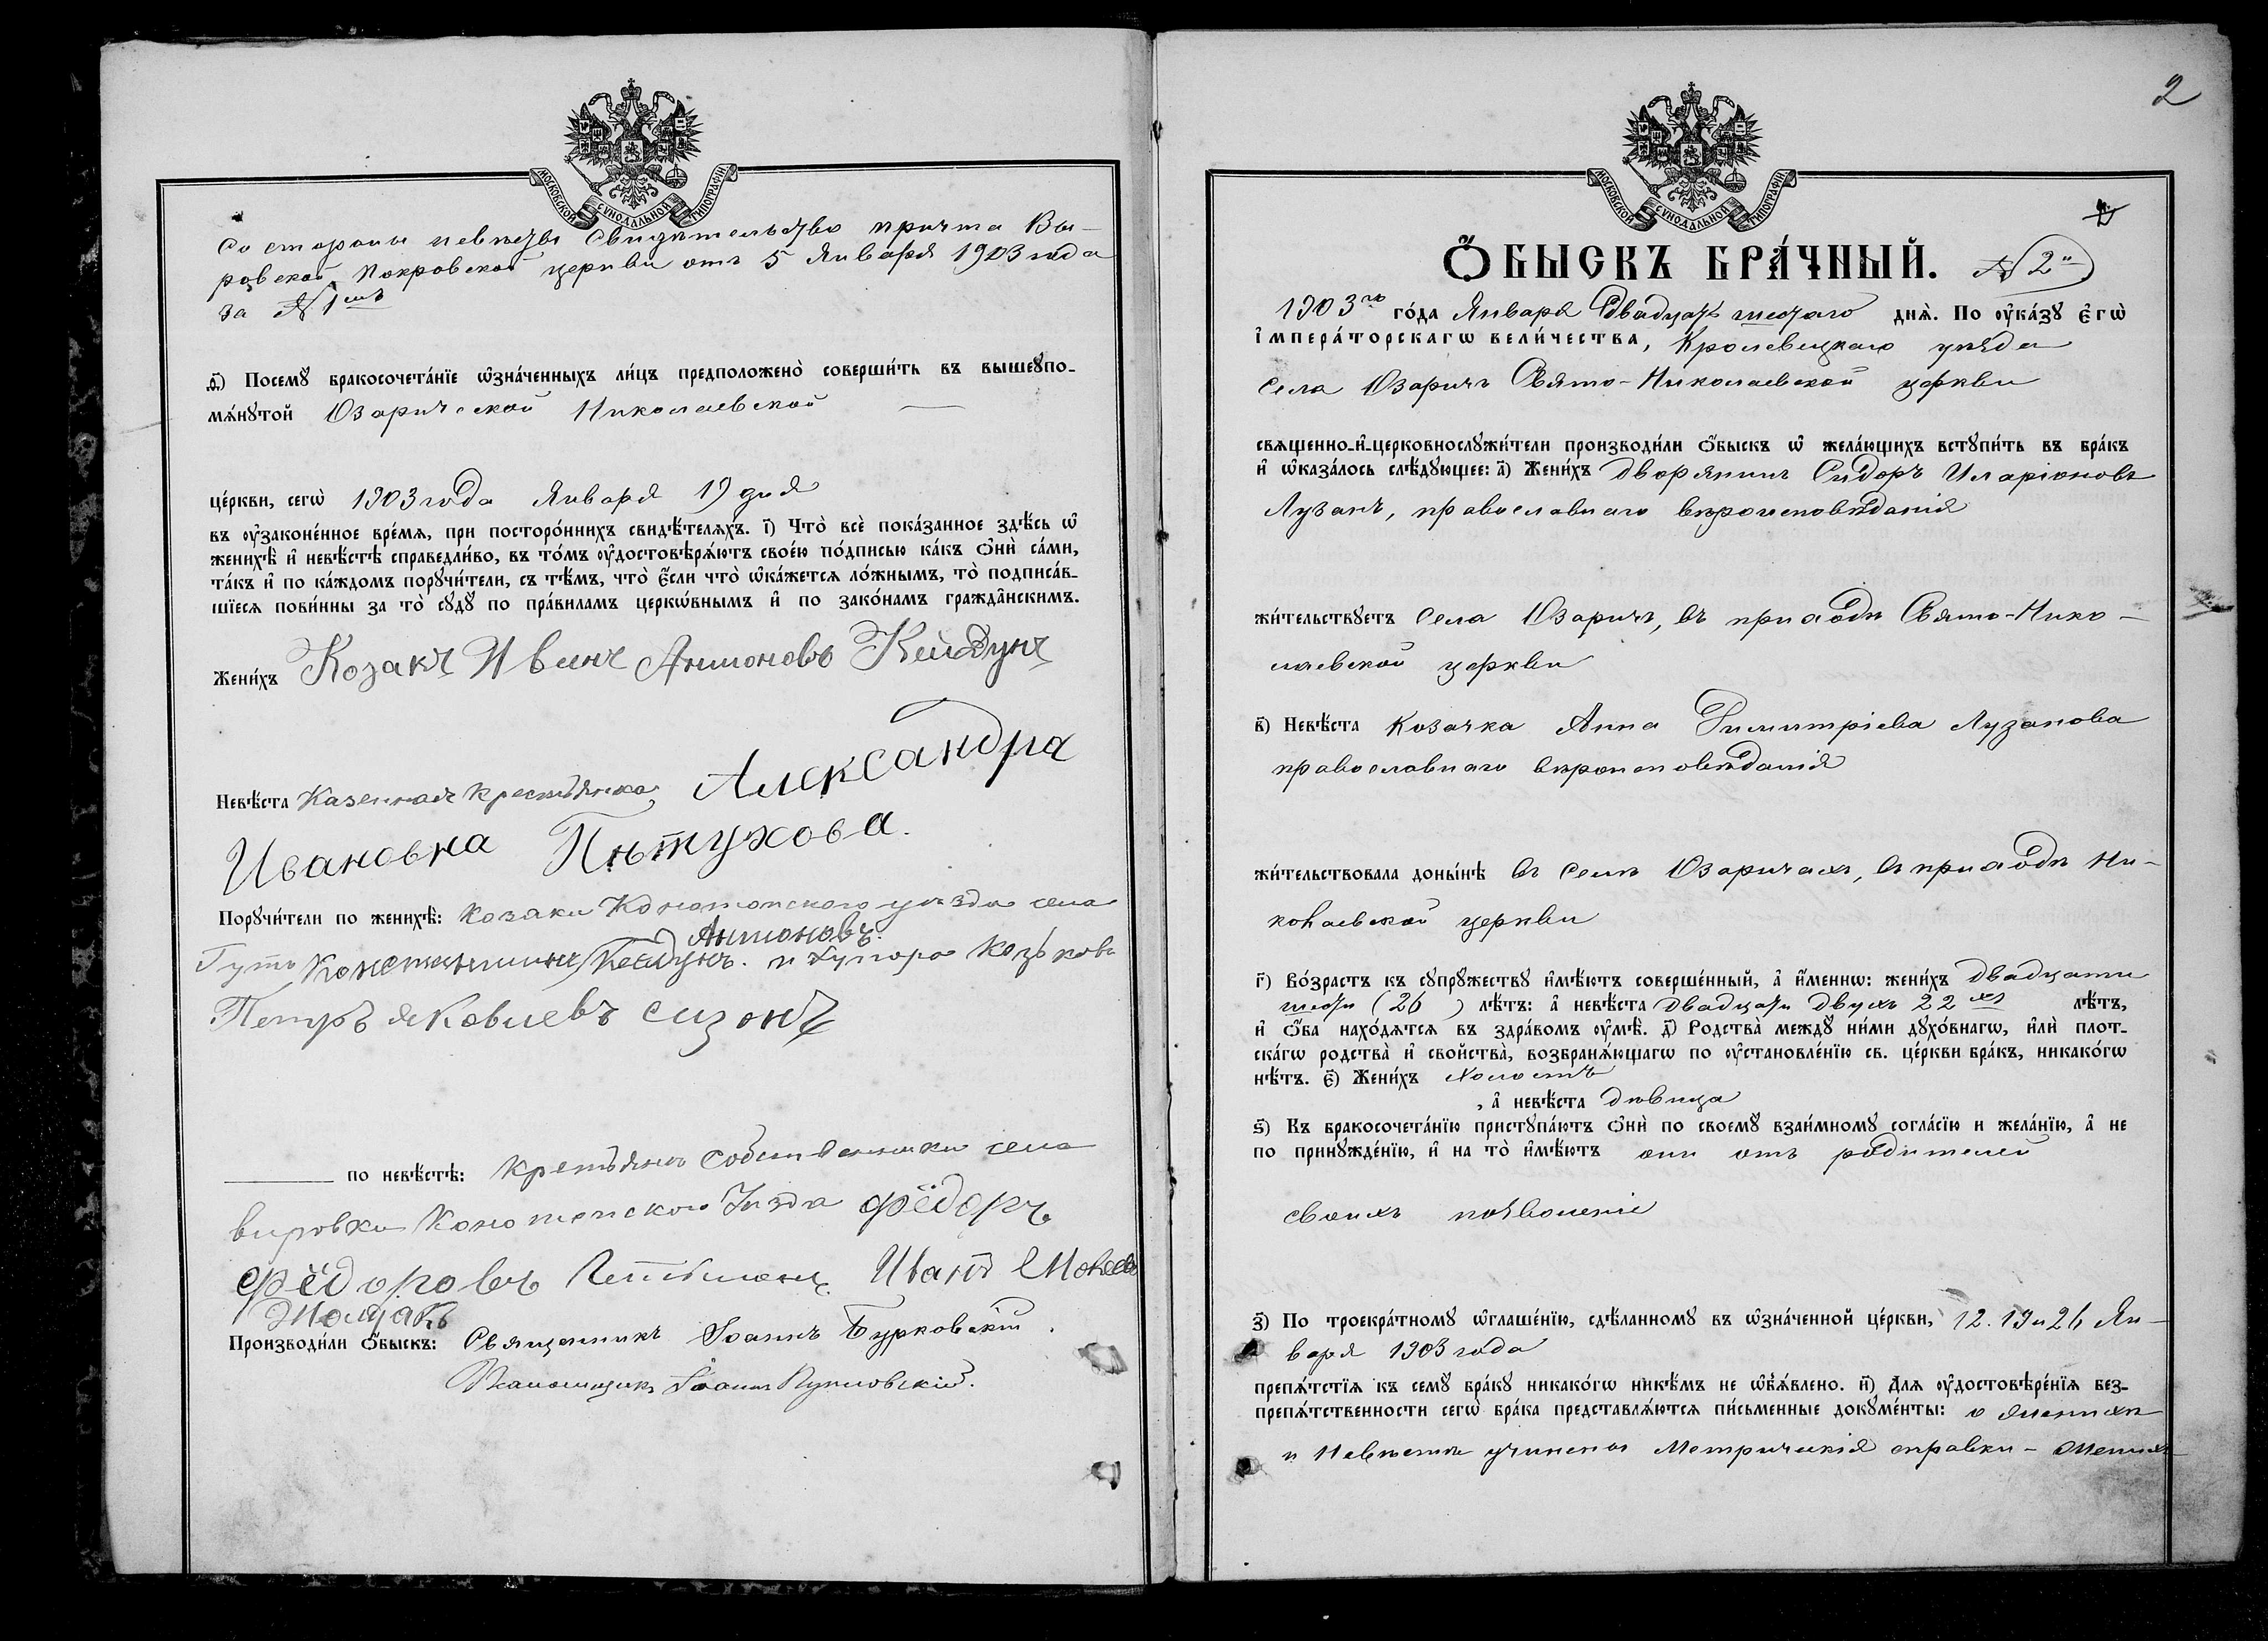 МОСКОВСКОЙ СѴНОДАЛЬНОЙ ТИПОГРАФІИ
Со стороны невѣсты Свидѣтельство причта Вы-
ровской Покровской церкви отъ 5 Января 1903 года
за № 1мъ
ѳ҃) Посемꙋ бракосочета́нїе ѡ҆зна́ченныхъ ли́цъ предположено̀ соверши́ть въ вышеꙋпо-
мѧ́нꙋтой Юзаричской Николаевской
це́ркви, сегѡ̀ 1903 года Января 19 дня
въ ᲂу҆законе́нное вре́мѧ, при посторо́ннихъ свидѣ́телѧхъ. і҃) Что̀ всѐ пока́занное здѣ́сь ѡ҆
женихѣ̀ и҆ невѣ́стѣ справедли́во, въ то́мъ ᲂу҆достовѣрѧ́ютъ свое́ю по́дписью ка́къ ѻ҆нѝ са́ми,
та́къ и҆ по ка́ждомъ порꙋчи́тели, съ тѣ́мъ, что̀ є҆́сли что̀ ѡ҆ка́жетсѧ ло́жнымъ, то̀ подписа́в-
шїесѧ пови́нны за то̀ сꙋдꙋ̀ по пра́виламъ церкѡ́внымъ и҆ по зако́намъ гражда̑нскимъ.
Жени́хъ Козакъ Иванъ Антоновъ Кейдунъ
Невѣ́ста Казенная крестьянка Александра
Ивановна Пѣтухова.
Порꙋчи́тели по женихѣ̀: Козаки Конотопского уѣзда села
Антоновъ
Гутъ Константинъ Кейдунъ. и хутора
Петръ Яковлевъ Сизонъ
по невѣ́стѣ: Крестьяне собственники села
Вировки Конотопского Уѣзда Фёдоръ
Фёдоровъ Иванъ
Производи́ли ѻ҆́быскъ: Священникъ Іоаннъ Бурковскій.
Псаломщикъ Іоаннъ
2
МОСКОВСКОЙ СѴНОДАЛЬНОЙ ТИПОГРАФІИ
2
Ѻ҆́БЫСКЪ БРА́ЧНЫЙ. № 2й
1903го го́да Января Двадцать шестаго днѧ̀. По ᲂу҆ка́зꙋ є҆гѡ̀
і҆мпера́торскагѡ вели́чества, Кролевецкаго уѣзда
села Юзаричъ Свято-Николаевской церкви
свѧщенно-и҆-церковнослꙋжи́тели производи́ли ѻ҆́быскъ ѡ҆ жела́ющихъ встꙋпи́ть въ бра́къ
и҆ ѡ҆каза́лось слѣ́дꙋющее: а҃) Жени́хъ Дворянинъ Сидоръ Иларіоновъ
Лузанъ, православнаго вѣроисповѣданія
жи́тельствꙋетъ села Юзаричъ, въ приходѣ Свято-Нико-
лаевской церкви
в҃) Невѣ́ста Козачка Анна Димитріева Лузанова
православнаго вѣроисповѣданія
жи́тельствовала доны́нѣ въ селѣ Юзаричахъ, въ приходѣ Ни-
колаевской церкви
г҃) Во́зрастъ къ сꙋпрꙋ́жествꙋ и҆мѣ́ютъ соверше́нный, а҆ и҆́меннѡ: жени́хъ двадцати
шести (26) лѣ́тъ: а҆ невѣ́ста двадцати двухъ 22хъ лѣ́тъ,
и҆ ѻ҆́ба нахо́дѧтсѧ въ здра́вомъ ᲂу҆мѣ̀. д҃) Родства̀ междꙋ̀ ни́ми дꙋхо́внагѡ, и҆лѝ плот-
ска́гѡ родства̀ и҆ свойства̀, возбранѧ́ющагѡ по ᲂу҆становле́нїю св. це́ркви бра́къ, никако́гѡ
нѣ́тъ. є҃) Жени́хъ холостъ
, а҆ невѣ́ста дѣвица
ѕ҃) Къ бракосочета́нїю пристꙋпа́ютъ ѻ҆нѝ по своемꙋ̀ взаи́мномꙋ согла́сїю и жела́нїю, а҆ не
по принꙋжде́нїю, и҆ на то̀ и҆мѣ́ютъ они отъ родителей
своихъ позволеніе
з҃) По троекра́тномꙋ ѡ҆глаше́нїю, сдѣ́ланномꙋ въ ѡ҆зна́ченной це́ркви, 12. 19 и 26 Ян-
варя 1903 года
препѧ́тствїѧ къ семꙋ̀ бра́кꙋ никако́гѡ никѣ́мъ не ѡ҆б̾ѧ́влено. и҃) Длѧ ᲂу҆достовѣре́нїѧ без-
препѧ́тственности сегѡ̀ бра́ка представлѧ́ютсѧ пи́сьменные докꙋме́нты: о женихѣ
и невѣстѣ учинены Метрическія справки – Жених